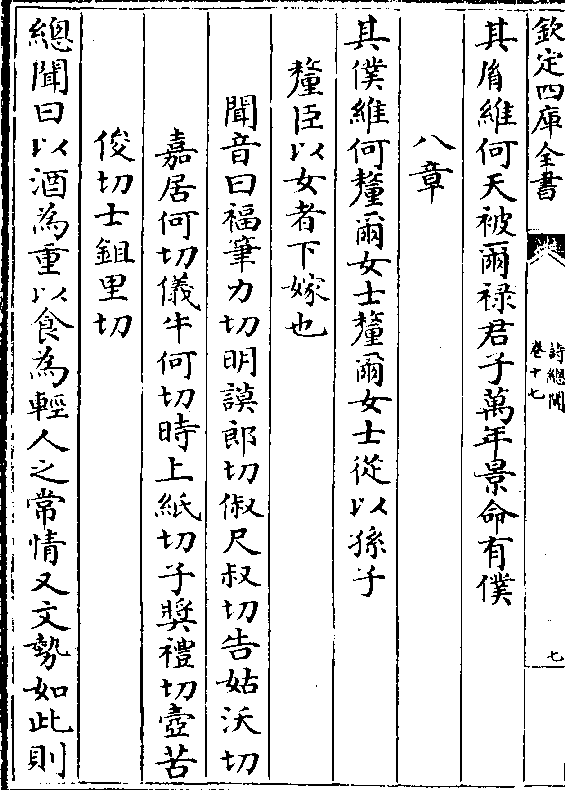 欽定四庫全書
詩總聞
卷十七
七
其胤維何天被爾禄君子萬年景命有僕
八章
其僕維何釐爾女士釐爾女士從以孫子
釐臣以女者下嫁也
聞音曰福筆力切明謨郎切俶尺叔切告姑沃切
嘉居何切儀牛何切時上紙切子奬禮切壺苦
俊切士鉏里切
總聞曰以酒為重以食為輕人之常情又文勢如此則